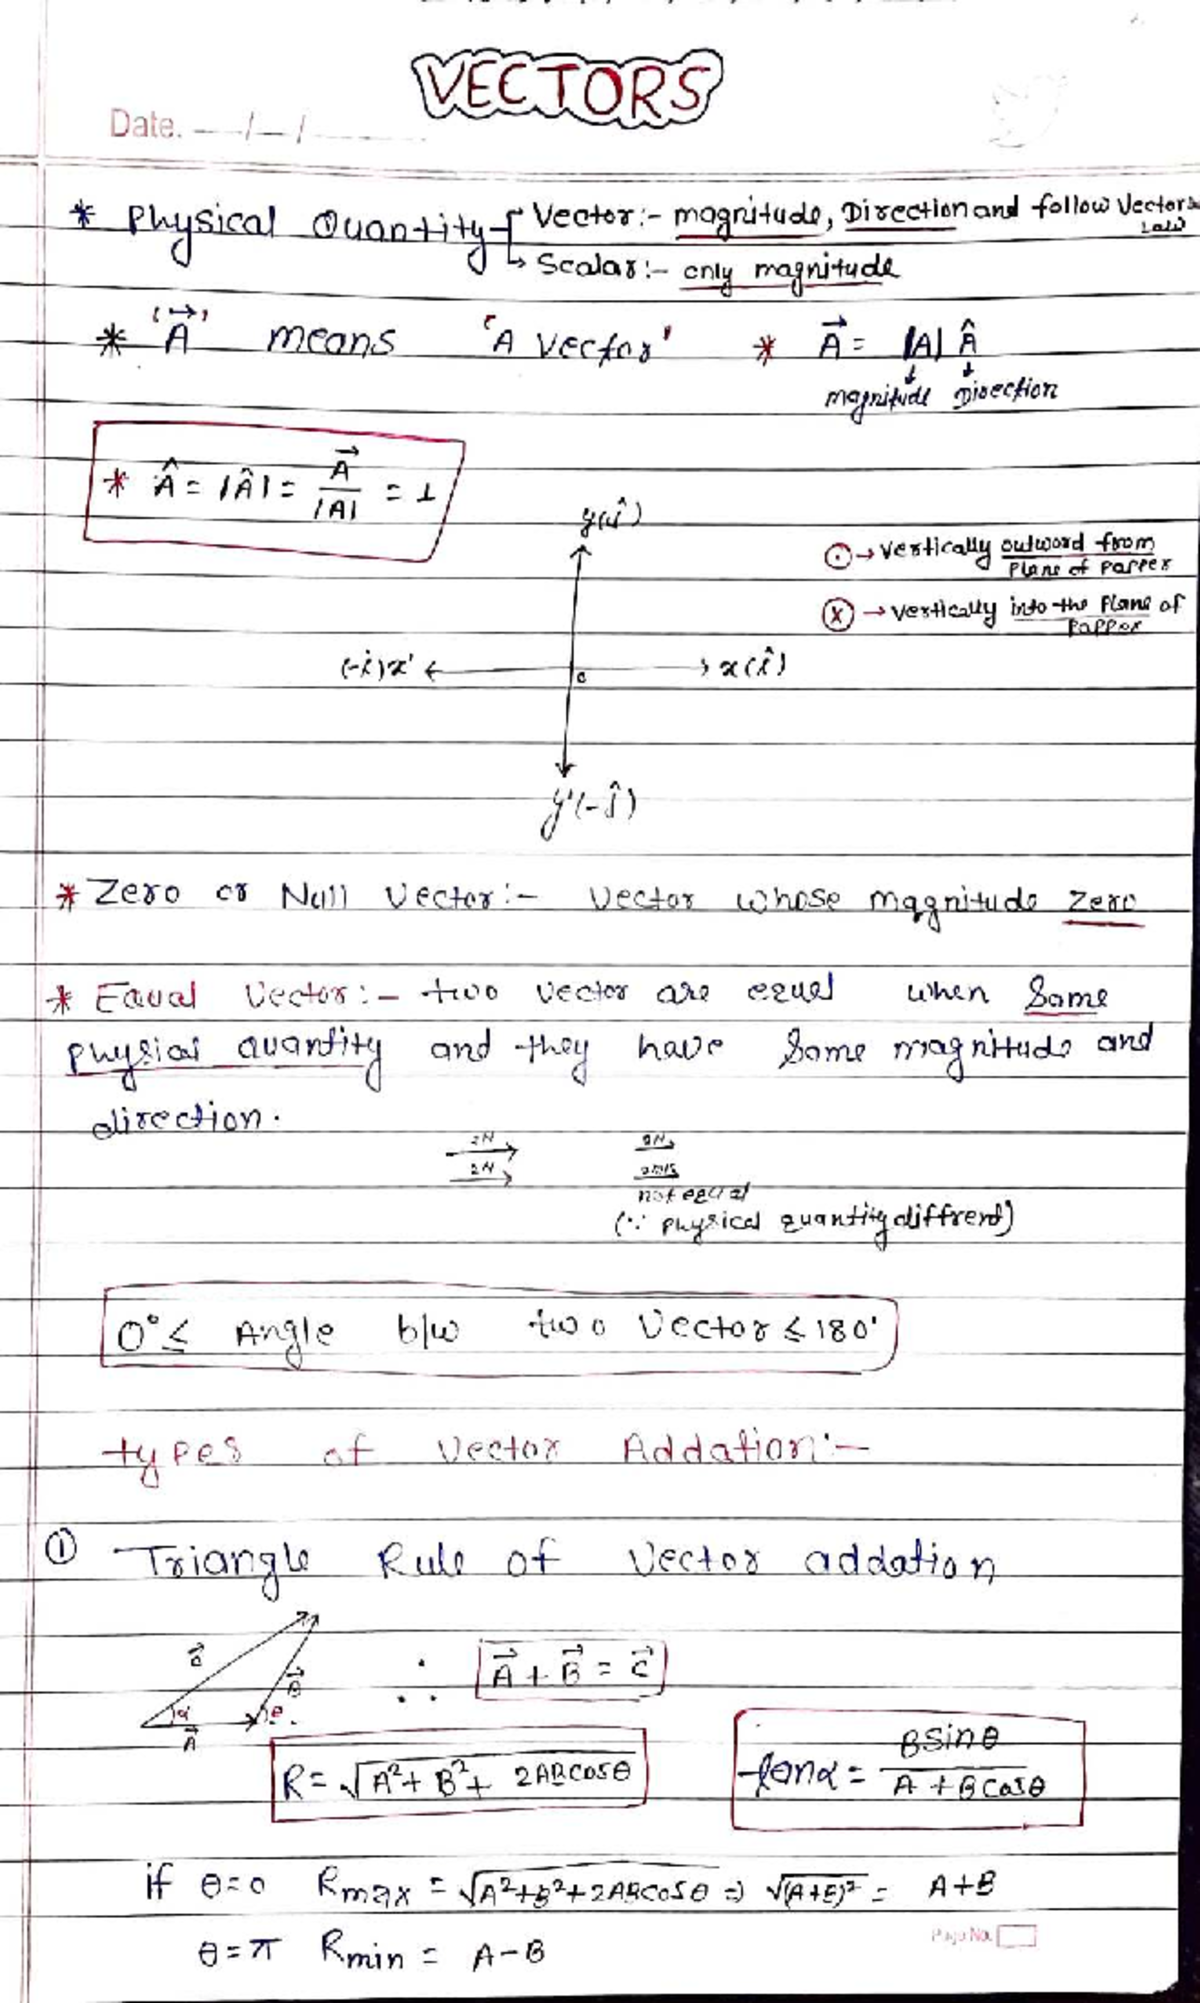 VECTORS
Date. __/__/____
* Physical Quantity → Vector:- magnitude, Direction and follow Vector Law
→ Scalar:- only magnitude
* '\vec{A}' means 'A vector' * \vec{A} = |A| \hat{A}
magnitude Direction
* \hat{A} = |\hat{A}| = \frac{\vec{A}}{|A|} = 1
y(\hat{j})
⊙ → vertically outword from
Plane of Papper
ⓧ → vertically into the Plane of
Papper
(-i)x' x(\hat{i})
o
y'(-\hat{j})
* Zero or Null Vector:- Vector whose magnitude zero
* Equal Vector:- two vector are equal when Same
physical quantity and they have Same magnitude and
direction.
2N 2N
2N 2m/s
not equal
(∵ physical quantity diffrent)
0° ≤ Angle b/w two Vector ≤ 180°
types of Vector Addation:-
① Triangle Rule of Vector addation
\vec{C} \vec{B} ∴ \vec{A} + \vec{B} = \vec{C}
α θ
\vec{A}
R = √(A² + B² + 2ABcosθ) tanα = \frac{Bsinθ}{A + Bcosθ}
if θ=0 Rmax = √(A²+B²+2ABcosθ) ⇒ √(A+B)² = A+B
Page No.
θ=π Rmin = A-B